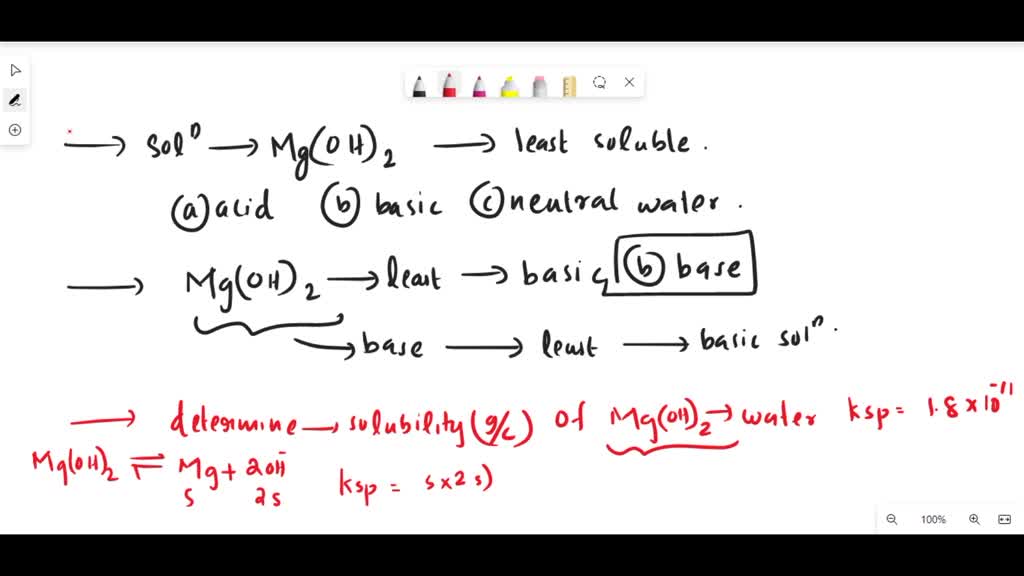 ⟶ Solⁿ ⟶ Mg(OH)₂ ⟶ least soluble.
ⓐ acid ⓑ basic ⓒ neutral water.
⟶ Mg(OH)₂ ⟶ least ⟶ basic, ⓑ base
⟶ base ⟶ least ⟶ basic solⁿ.
⟶ determine ⟶ solubility (g/L) of Mg(OH)₂ ⟶ water ksp = 1.8 × 10⁻¹¹
Mg(OH)₂ ⇌ Mg + 2OH⁻ ksp = s×2s)
s 2s
100%